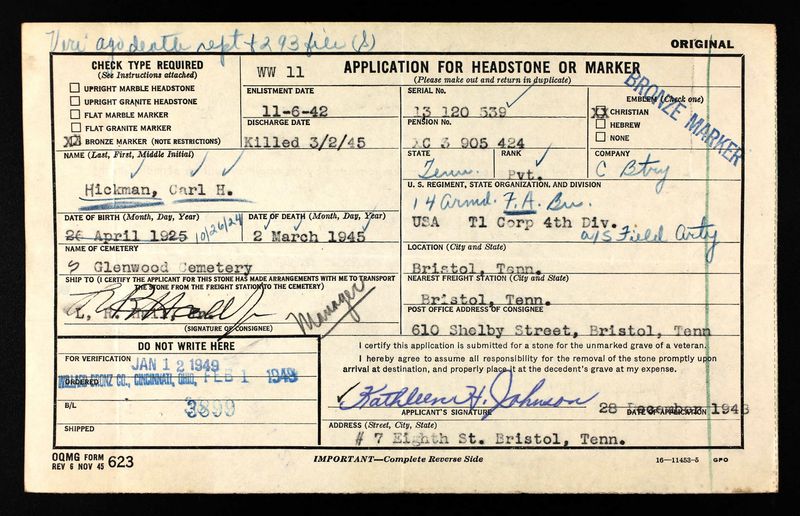 Veri ago death rept + 293 file (s)
ORIGINAL
CHECK TYPE REQUIRED
(See Instructions attached)
UPRIGHT MARBLE HEADSTONE
UPRIGHT GRANITE HEADSTONE
FLAT MARBLE MARKER
FLAT GRANITE MARKER
XX BRONZE MARKER (NOTE RESTRICTIONS)
WW 11
APPLICATION FOR HEADSTONE OR MARKER
(Please make out and return in duplicate)
ENLISTMENT DATE
11-6-42
DISCHARGE DATE
Killed 3/2/45
SERIAL No.
13 120 539
PENSION No.
XC 3 905 424
EMBLEM (Check one)
XX CHRISTIAN
HEBREW
NONE
BRONZE MARKER
NAME (Last, First, Middle Initial)
Hickman, Carl H.
STATE
Tenn.
RANK
Pvt.
COMPANY
C Btry
U. S. REGIMENT, STATE ORGANIZATION, AND DIVISION
14 Armd. F.A. Bn.
USA T1 Corp 4th Div.
a/s Field Arty
DATE OF BIRTH (Month, Day, Year)
26 April 1925 10/26/24
DATE OF DEATH (Month, Day, Year)
2 March 1945
NAME OF CEMETERY
Glenwood Cemetery
LOCATION (City and State)
Bristol, Tenn.
SHIP TO (I CERTIFY THE APPLICANT FOR THIS STONE HAS MADE ARRANGEMENTS WITH ME TO TRANSPORT
THE STONE FROM THE FREIGHT STATION TO THE CEMETERY)
Manager
(SIGNATURE OF CONSIGNEE)
NEAREST FREIGHT STATION (City and State)
Bristol, Tenn.
POST OFFICE ADDRESS OF CONSIGNEE
610 Shelby Street, Bristol, Tenn
DO NOT WRITE HERE
FOR VERIFICATION
JAN 12 1949
ORDERED
CINCINNATI, OHIO, FEB 1 1949
B/L
3899
SHIPPED
I certify this application is submitted for a stone for the unmarked grave of a veteran.
I hereby agree to assume all responsibility for the removal of the stone promptly upon
arrival at destination, and properly place it at the decedent's grave at my expense.
Kathleen H. Johnson
28 December 1948
APPLICANT'S SIGNATURE
DATE OF APPLICATION
ADDRESS (Street, City, State)
# 7 Eighth St. Bristol, Tenn.
OQMG FORM
REV 6 NOV 45 623
IMPORTANT—Complete Reverse Side
16—11453-5 GPO